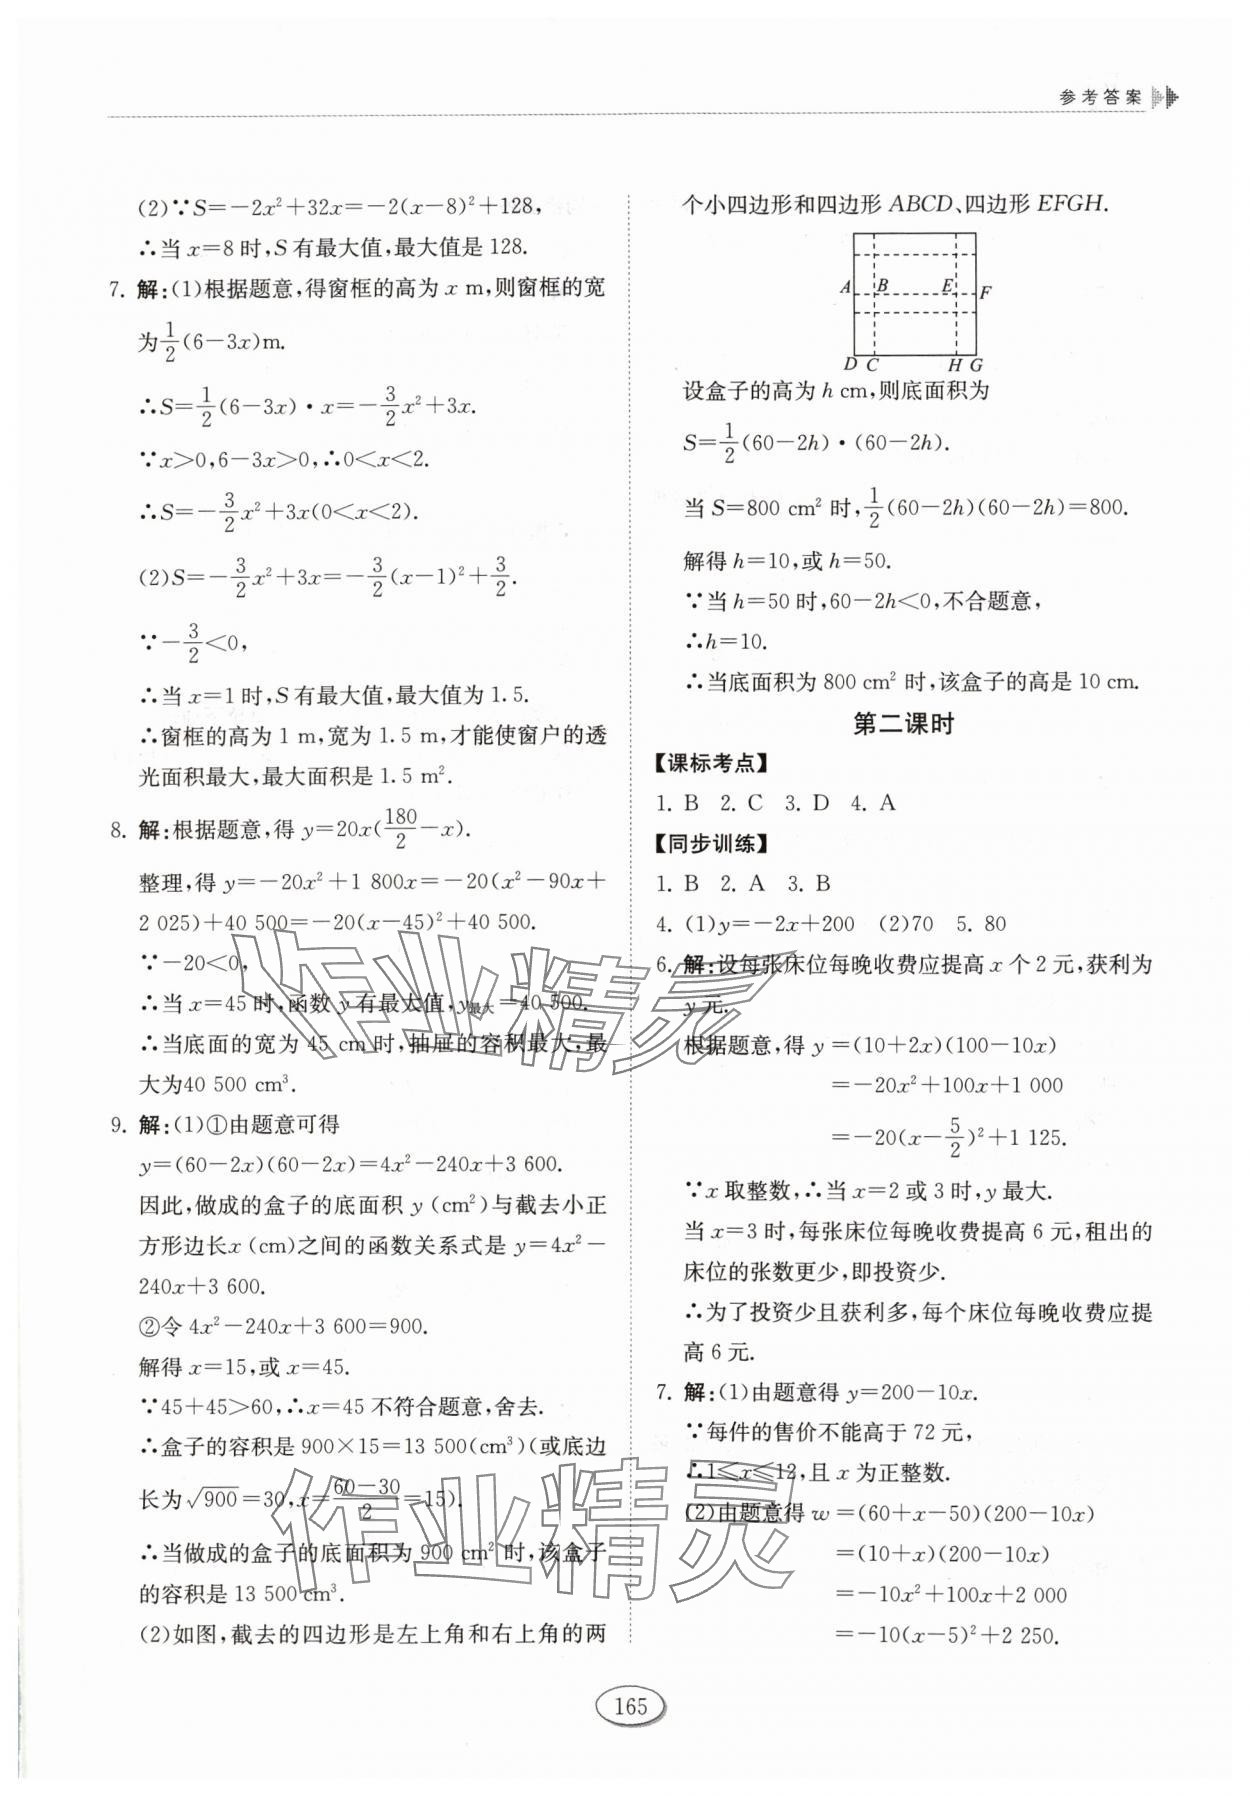 参考答案
(2)∵S=-2x²+32x=-2(x-8)²+128,
∴当 x=8 时,S 有最大值,最大值是 128.
7. 解:(1)根据题意,得窗框的高为 x m,则窗框的宽
为1/2(6-3x)m.
∴S=1/2(6-3x)·x=-3/2x²+3x.
∵x>0,6-3x>0,∴0<x<2.
∴S=-3/2x²+3x(0<x<2).
(2)S=-3/2x²+3x=-3/2(x-1)²+3/2.
∵-3/2<0,
∴当 x=1 时,S 有最大值,最大值为 1.5.
∴窗框的高为 1 m,宽为 1.5 m,才能使窗户的透
光面积最大,最大面积是 1.5 m².
8. 解:根据题意,得 y=20x(180/2-x).
整理,得 y=-20x²+1 800x=-20(x²-90x+
2 025)+40 500=-20(x-45)²+40 500.
∵-20<0,
∴当 x=45 时,函数 y 有最大值,y最大=40 500.
∴当底面的宽为 45 cm 时,抽屉的容积最大,最
大为40 500 cm³.
9. 解:(1)①由题意可得
y=(60-2x)(60-2x)=4x²-240x+3 600.
因此,做成的盒子的底面积 y (cm²)与截去小正
方形边长x (cm)之间的函数关系式是 y=4x²-
240x+3 600.
②令 4x²-240x+3 600=900.
解得 x=15,或 x=45.
∵45+45>60,∴x=45 不符合题意,舍去.
∴盒子的容积是 900×15=13 500(cm³)(或底边
长为√900=30,x=(60-30)/2=15).
∴当做成的盒子的底面积为 900 cm² 时,该盒子
的容积是 13 500 cm³.
(2)如图,截去的四边形是左上角和右上角的两
个小四边形和四边形 ABCD、四边形 EFGH.
A B E F
D C H G
设盒子的高为 h cm,则底面积为
S=1/2(60-2h)·(60-2h).
当 S=800 cm² 时,1/2(60-2h)(60-2h)=800.
解得 h=10,或 h=50.
∵当 h=50 时,60-2h<0,不合题意,
∴h=10.
∴当底面积为 800 cm² 时,该盒子的高是 10 cm.
第二课时
【课标考点】
1. B 2. C 3. D 4. A
【同步训练】
1. B 2. A 3. B
4. (1)y=-2x+200 (2)70 5. 80
6. 解:设每张床位每晚收费应提高 x 个 2 元,获利为
y 元.
根据题意,得 y=(10+2x)(100-10x)
=-20x²+100x+1 000
=-20(x-5/2)²+1 125.
∵x 取整数,∴当 x=2 或 3 时,y 最大.
当 x=3 时,每张床位每晚收费提高 6 元,租出的
床位的张数更少,即投资少.
∴为了投资少且获利多,每个床位每晚收费应提
高 6 元.
7. 解:(1)由题意得 y=200-10x.
∵每件的售价不能高于 72 元,
∴1≤x≤12,且 x 为正整数.
(2)由题意得 w=(60+x-50)(200-10x)
=(10+x)(200-10x)
=-10x²+100x+2 000
=-10(x-5)²+2 250.
165
作业精灵
作业精灵